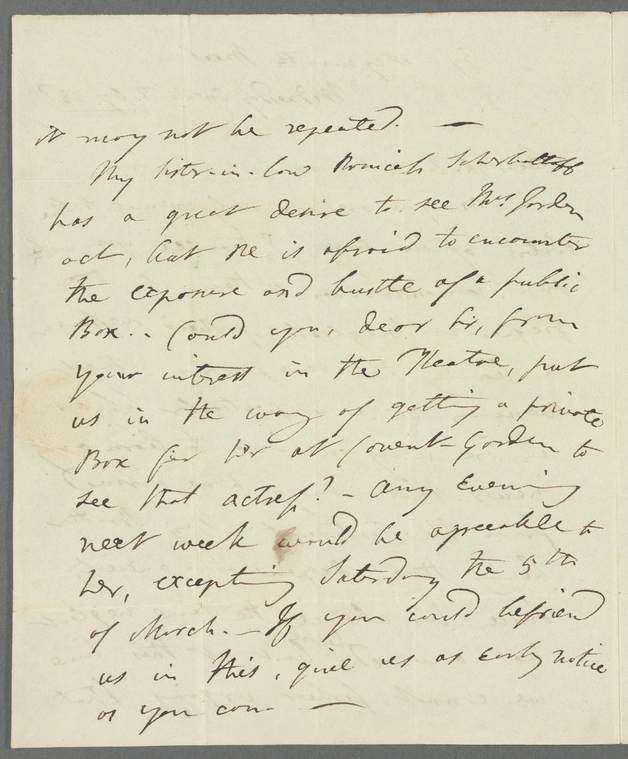 it may not be repeated. —
My sister-in-law Princess Scherbatoff
has a great desire to see Mrs. Jordan
act, but she is afraid to encounter
the exposure and bustle of a public
Box. - Could you, dear Sir, from
your interest in the Theatre, put
us in the way of getting a private
Box for her at Covent-Garden to
see that actress? - any Evening
next week would be agreeable to
her, excepting Saturday the 5th
of March. - If you could befriend
us in this, give us as early notice
as you can. —